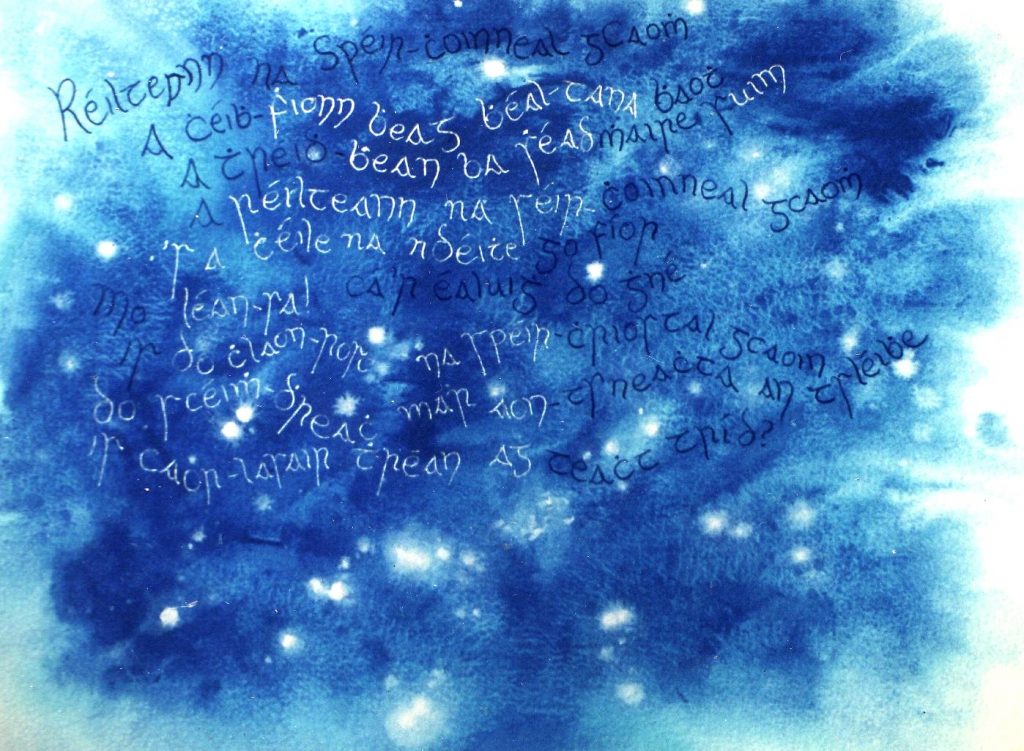 Réilteann na Spéir-ċoinneal gcaoṁ
A ċéiḃ-ḟionn ḃeag ḃéal-tana ḃaoṫ
A ṫréiḋ-ḃean ba séadṁaire
A réilteann na spéir-ċoinneal gcaoṁ
's a ċéile na nDéiṫe go fíor
Mo léan-sa! cá'r éaluiġ do ġné
is do ċlaon-rosc na spéir-ċriostal gcaoṁ
do scéiṁ-ḋreaċ mar aon-tsneaċta an tsléiḃe
is caor-lasair ṫréan ag teaċt tríd?